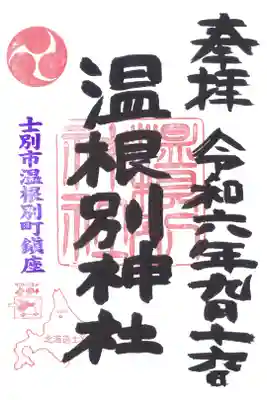 奉拝
令和六年九月十六日
温根別神社
士別市温根別町鎮座
北海道士